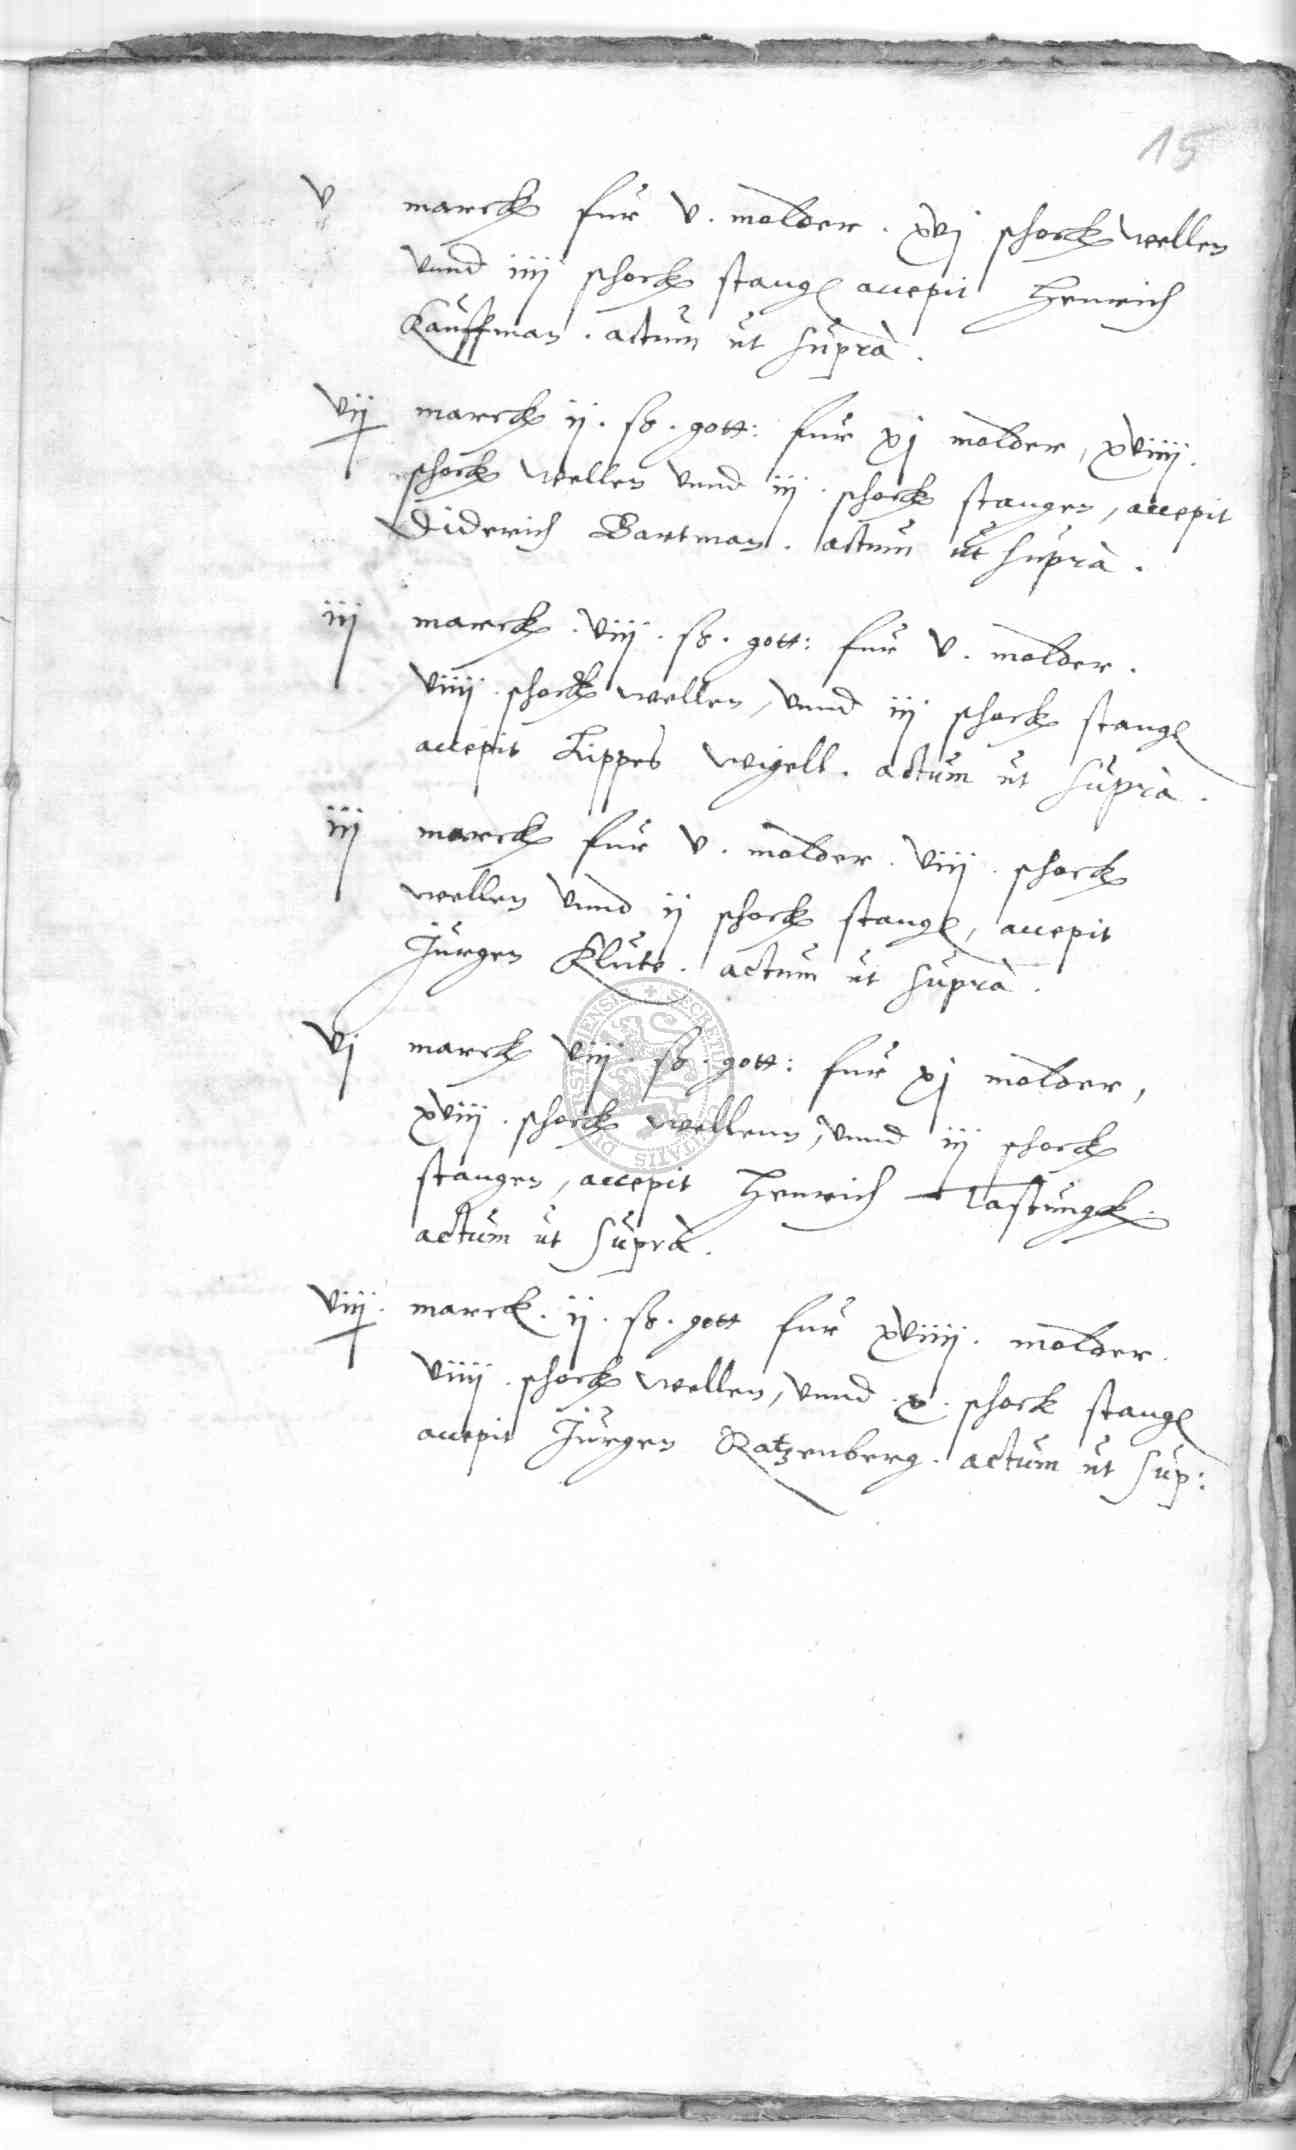 15
v marck fur v. molder. xvj schock wellen
vnnd iiij schock stang accepit Henrich
Kauffman. actum ut supra.
vij marck ij. ß. gott: fur xj molder, xviiij.
schock wellen vnnd iij. schock stangen, accepit
Diderich Bartman. actum ut supra.
iij marck. viij. ß. gott: fur v. molder.
viiij. schock wellen, vnnd iij schock stang
accepit Lippes Wigell. actum ut supra.
iij marck fur v. molder. viij. schock
wellen vnnd ij schock stang, accepit
Jurgen Klute. actum ut supra.
vj marck viij. ß. gott: fur xj molder,
xviij. schock wellenn, vnnd iij schock
stangen, accepit Henrich Tastungk.
actum ut supra.
viij. marck. ij. ß. gott fur xviiij. molder.
viiij. schock wellen, vnnd .x. schock stang
accepit Jurgen Ratzenberg. actum ut sup: